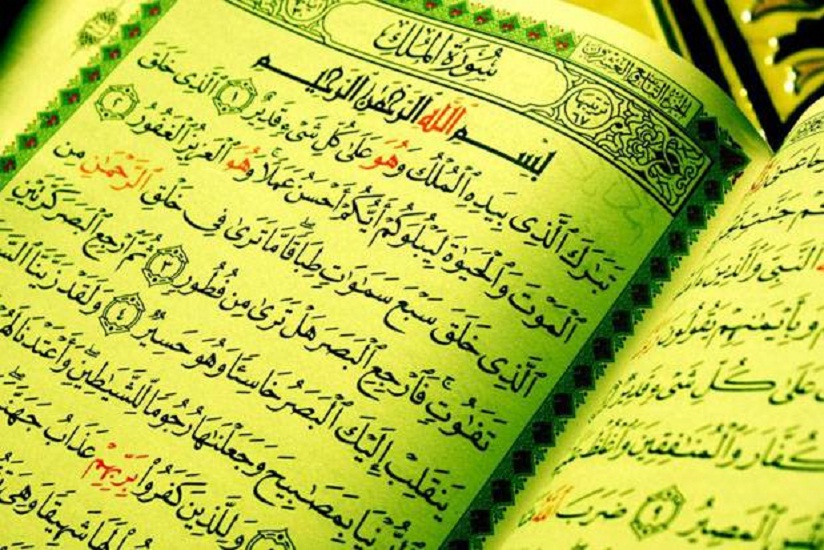 سُورَةُ المُلْكِ
الجزء التاسع والعشرون
بِسْمِ اللَّهِ الرَّحْمَٰنِ الرَّحِيمِ
تَبَٰرَكَ ٱلَّذِى بِيَدِهِ ٱلْمُلْكُ وَهُوَ عَلَىٰ كُلِّ شَىْءٍ قَدِيرٌ ١ ٱلَّذِى خَلَقَ
ٱلْمَوْتَ وَٱلْحَيَوٰةَ لِيَبْلُوَكُمْ أَيُّكُمْ أَحْسَنُ عَمَلًا وَهُوَ ٱلْعَزِيزُ ٱلْغَفُورُ ٢
ٱلَّذِى خَلَقَ سَبْعَ سَمَٰوَٰتٍ طِبَاقًا مَّا تَرَىٰ فِى خَلْقِ ٱلرَّحْمَٰنِ مِن
تَفَٰوُتٍ فَٱرْجِعِ ٱلْبَصَرَ هَلْ تَرَىٰ مِن فُطُورٍ ٣ ثُمَّ ٱرْجِعِ ٱلْبَصَرَ كَرَّتَيْنِ
يَنقَلِبْ إِلَيْكَ ٱلْبَصَرُ خَاسِئًا وَهُوَ حَسِيرٌ ٤ وَلَقَدْ زَيَّنَّا
بِمَصَٰبِيحَ وَجَعَلْنَٰهَا رُجُومًا لِّلشَّيَٰطِينِ وَأَعْتَدْنَا
وَلِلَّذِينَ كَفَرُوا۟ بِرَبِّهِمْ عَذَابُ جَهَنَّمَ
لَهَا شَهِيقًا وَهِىَ
ٱلنَّبِىَّ وَٱلَّذِينَ
وَبِأَيْمَٰنِهِمْ يَقُولُونَ
عَلَىٰ كُلِّ شَىْءٍ قَدِيرٌ
ٱلْكُفَّارَ وَٱلْمُنَٰفِقِينَ وَٱغْلُظْ
ٱلْمَصِيرُ ٩ ضَرَبَ ٱللَّهُ